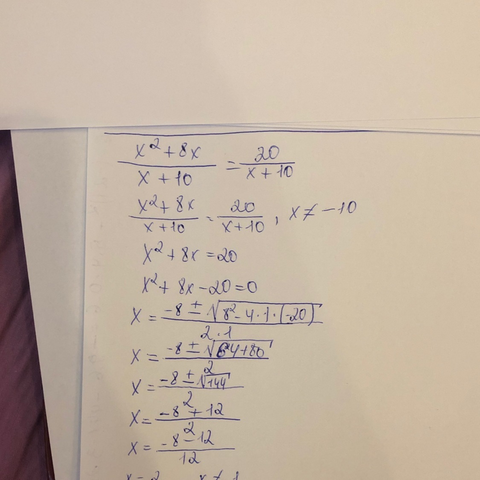 x² + 8x / x + 10 = 20 / x + 10
x² + 8x / x + 10 = 20 / x + 10 , x ≠ -10
x² + 8x = 20
x² + 8x - 20 = 0
x = -8 ± √8² - 4 · 1 · (-20) / 2 · 1
x = -8 ± √64 + 80 / 2
x = -8 ± √144 / 2
x = -8 + 12 / 2
x = -8 - 12 / 12